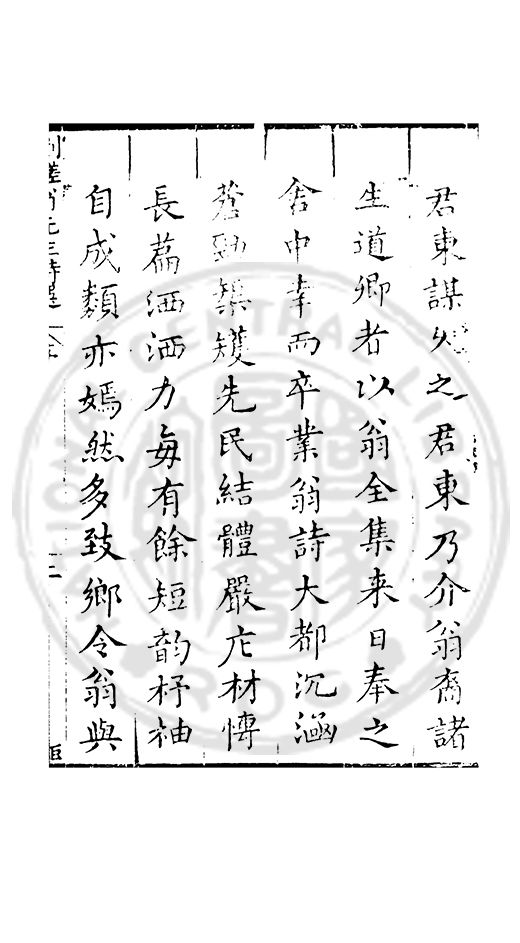 君東謀火之君東乃介翁裔諸
生道卿者以翁全集来日奉之
舍中幸而卒業翁詩大都沉涵
蒼勁榘矱先民結體嚴庀材慱
長篇洒洒力每有餘短韵杼柚
自成類亦嫣然多致鄉令翁與